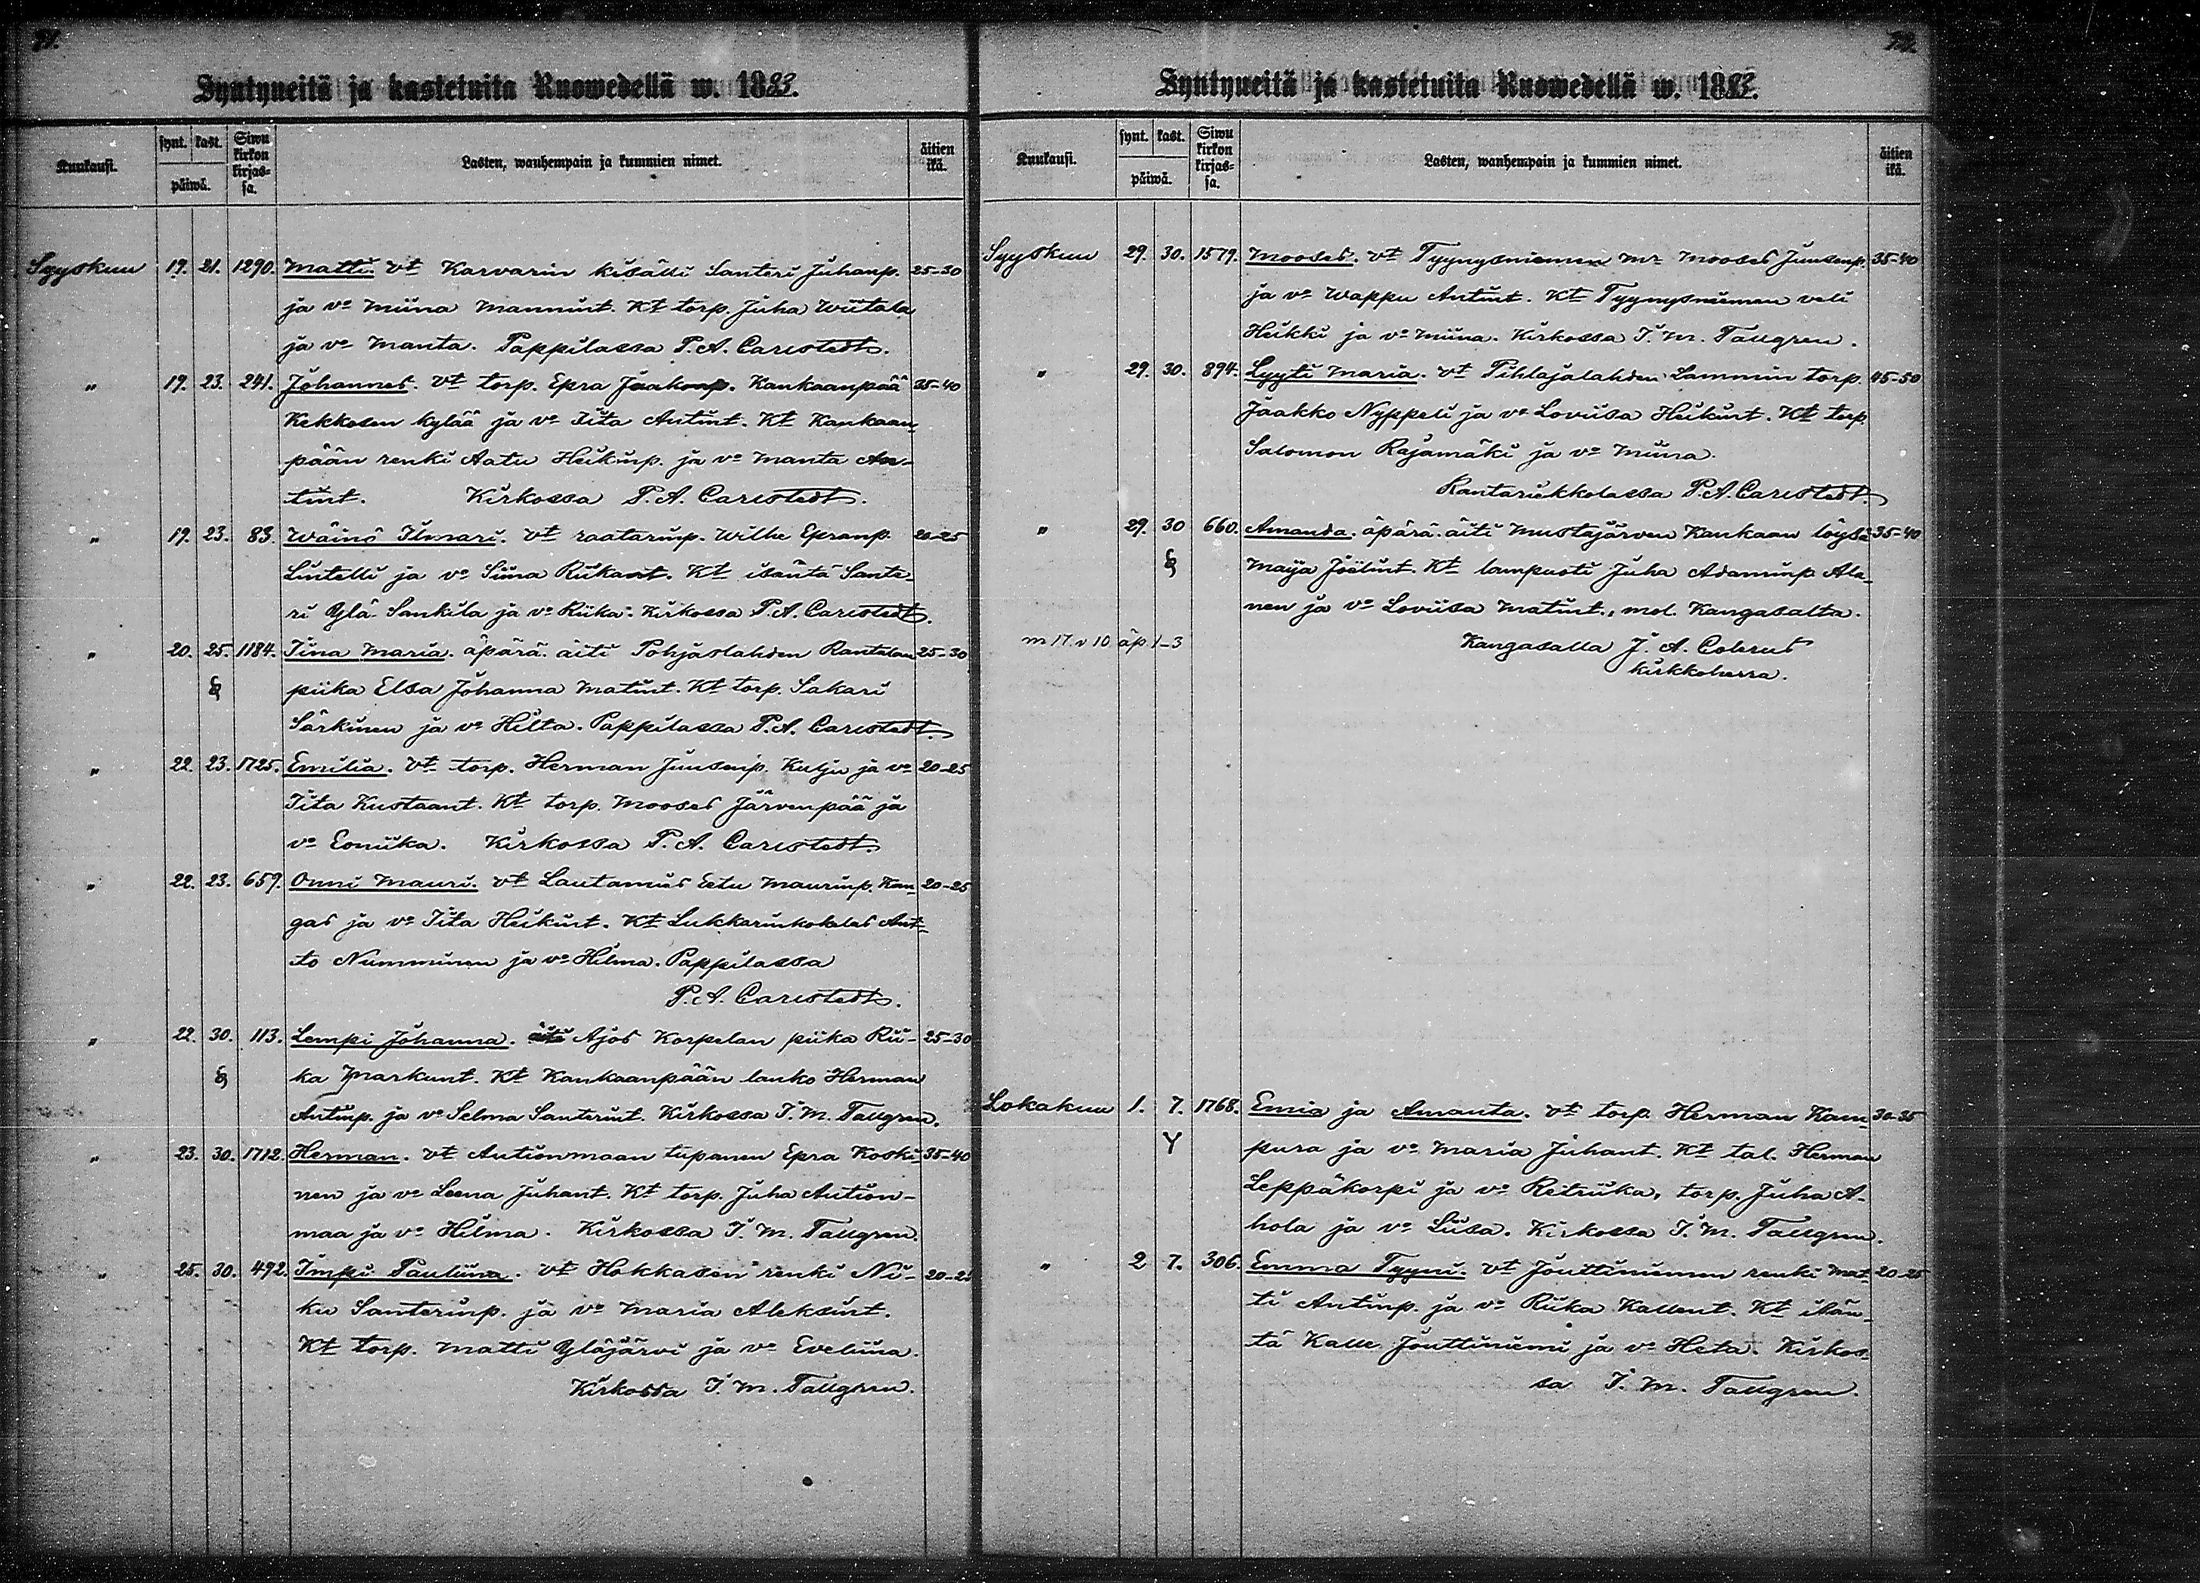 71.
Syntyneitä ja kastetuita Ruowedellä w. 1883.
Kuukausi. synt. kast. päiwä. Siwu kirkon kirjassa. Lasten, wanhempain ja kummien nimet. äitien ikä.
Syyskuu 19. 21. 1290. Matti. vt Karvarin kisälli Santeri Juhanp. 25-30
ja vo Miina Mannunt. Kt torp. Juha Wiitala
ja vo Manta. Pappilassa P. A. Carlstedt.
" 19. 23. 241. Johannes. vt torp. Epra Jaakonp. Kankaanpää 35-40
Kekkosen kylää ja vo Iita Antint. Kt Kankaan-
pään renki Aatu Heikinp. ja vo Manta An-
tint. Kirkossa P. A. Carlstedt.
" 19. 23. 83. Wäinö Ilmari. vt raatarinp. Wilhe Epranp. 20-25
Lintelli ja vo Siina Riikant. Kt isäntä Sante-
ri Ylä Sankila ja vo Riika. Kirkossa P. A. Carlstedt.
" 20. 25. 1184. Tina Maria. äpärä. äiti Pohjaslahden Rantalan 25-30
piika Elsa Johanna Matint. Kt torp. Sakari
Särkinen ja vo Hilta. Pappilassa P. A. Carlstedt.
" 22. 23. 1725. Emilia. vt torp. Herman Juusenp. Kulju ja vo 20-25
Iita Kustaant. Kt torp. Mooses Järvenpää ja
vo Eeniika. Kirkossa P. A. Carlstedt.
" 22. 23. 659. Onni Mauri. vt Lautamies Eetu Maurinp. Kan- 20-25
gas ja vo Iita Heikint. Kt Lukkarinkokelas Ant-
to Numminen ja vo Hilma. Pappilassa
P. A. Carlstedt.
" 22. 30. 113. Lempi Johanna. äiti Ajos Korpelan piika Rii- 25-30
ka Markunt. Kt Kankaanpään lanko Herman
Antinp. ja vo Selma Santerint. Kirkossa I. M. Tallgren.
" 23. 30. 1712. Herman. vt Autionmaan tupanen Epra Koski- 35-40
nen ja vo Leena Juhant. Kt torp. Juha Aution-
maa ja vo Hilma. Kirkossa I. M. Tallgren.
" 25. 30. 492. Impi Pauliina. vt Hokkasen renki Ni- 20-25
ku Santerinp. ja vo Maria Aleksint.
Kt torp. Matti Yläjärvi ja vo Eveliina.
Kirkossa I. M. Tallgren.
72.
Syntyneitä ja kastetuita Ruowedellä w. 1883.
Kuukausi. synt. kast. päiwä. Siwu kirkon kirjassa. Lasten, wanhempain ja kummien nimet. äitien ikä.
Syyskuu 29. 30. 1579. Mooses. vt Tyynysniemen mr Mooses Juusenp. 35-40
ja vo Wappu Antint. Kt Tyynysniemen veli
Heikki ja vo Miina. Kirkossa I. M. Tallgren.
" 29. 30. 894. Lyyti Maria. vt Pihlajalahden Lammin torp. 45-50
Jaakko Nyppeli ja vo Loviisa Heikint. Kt torp.
Salomon Rajamäki ja vo Miina.
Rantariekkolassa P. A. Carlstedt.
" 29. 30 660. Amanda. äpärä. äiti Mustajärven Kankaan löysä 35-40
Maija Joelint. Kt lampuoti Juha Adaminp. Ala-
nen ja vo Loviisa Matint., mol. Kangasalta.
m 17. v 10 äp. 1-3 Kangasalla J. A. Colerus
kirkkoherra.
Lokakuu 1. 7. 1768. Emia ja Amanta. vt torp. Herman Kam- 30-35
Y pura ja vo Maria Juhant. Kt tal. Herman
Leppäkorpi ja vo Retriika, torp. Juha A-
hola ja vo Liisa. Kirkossa I. M. Tallgren.
" 2 7. 306. Emma Tyyni. vt Jouttiniemen renki Mat- 20-25
ti Antinp. ja vo Riika Kallent. Kt isän-
tä Kalle Jouttiniemi ja vo Heta. Kirkos-
sa I. M. Tallgren.